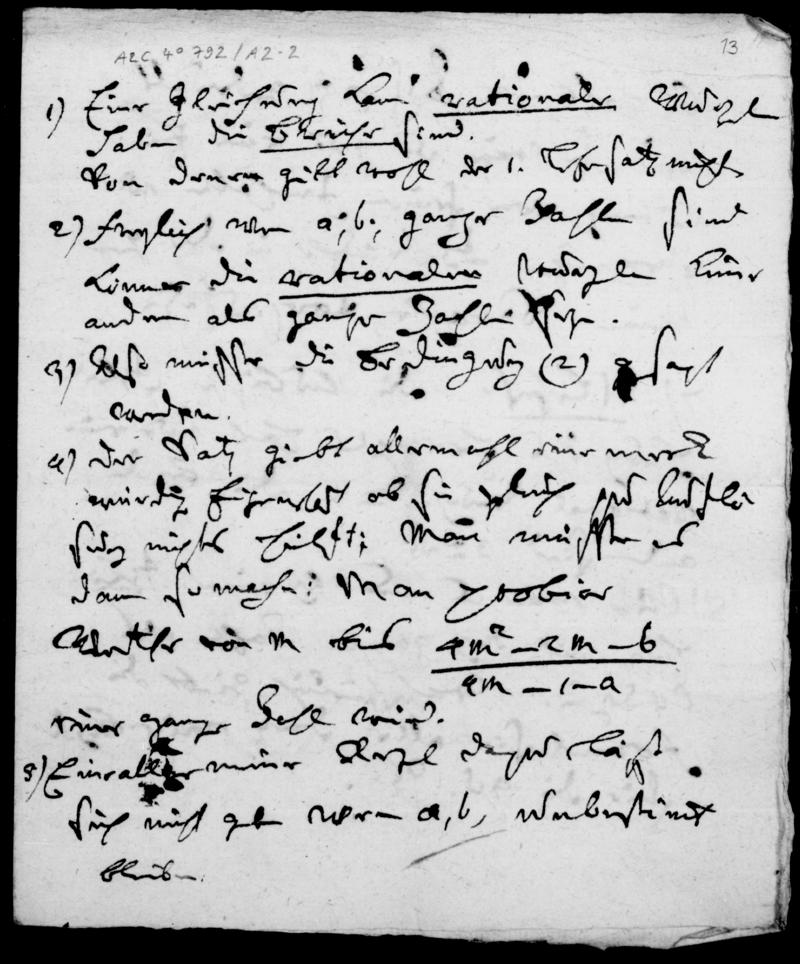 A2C 4° 792 / A2-2
13
1) Eine Gleichung kan rationale Wurzeln
haben die Brüche sind.
Von denen gilt wohl der 1. Lehrsatz nicht
2) Freylich wen a, b, ganze Zahlen sind
können die rationalen Wurzeln keine
andern als ganze Zahlen seyn.
3) Also müsste die Bedingung (2) gesagt
werden.
4) der Satz giebt allemahl eine merk
würdig Eigenschaft ob sie gleich zur Auflö
sung nichts hilft; Man müsste es
dann so machen: Man probire
Werthe von m bis 4m² — 2m — b
4m — 1 — a
eine ganze Zahl wird.
5) Eine allgemeine Regel dazu läßt
sich nicht geben wenn a, b, unbestimt
bleiben.